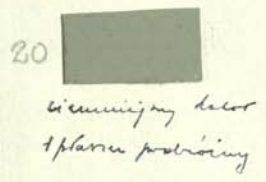 20
ciemniejszy kolor
1 płaszcz podróżny